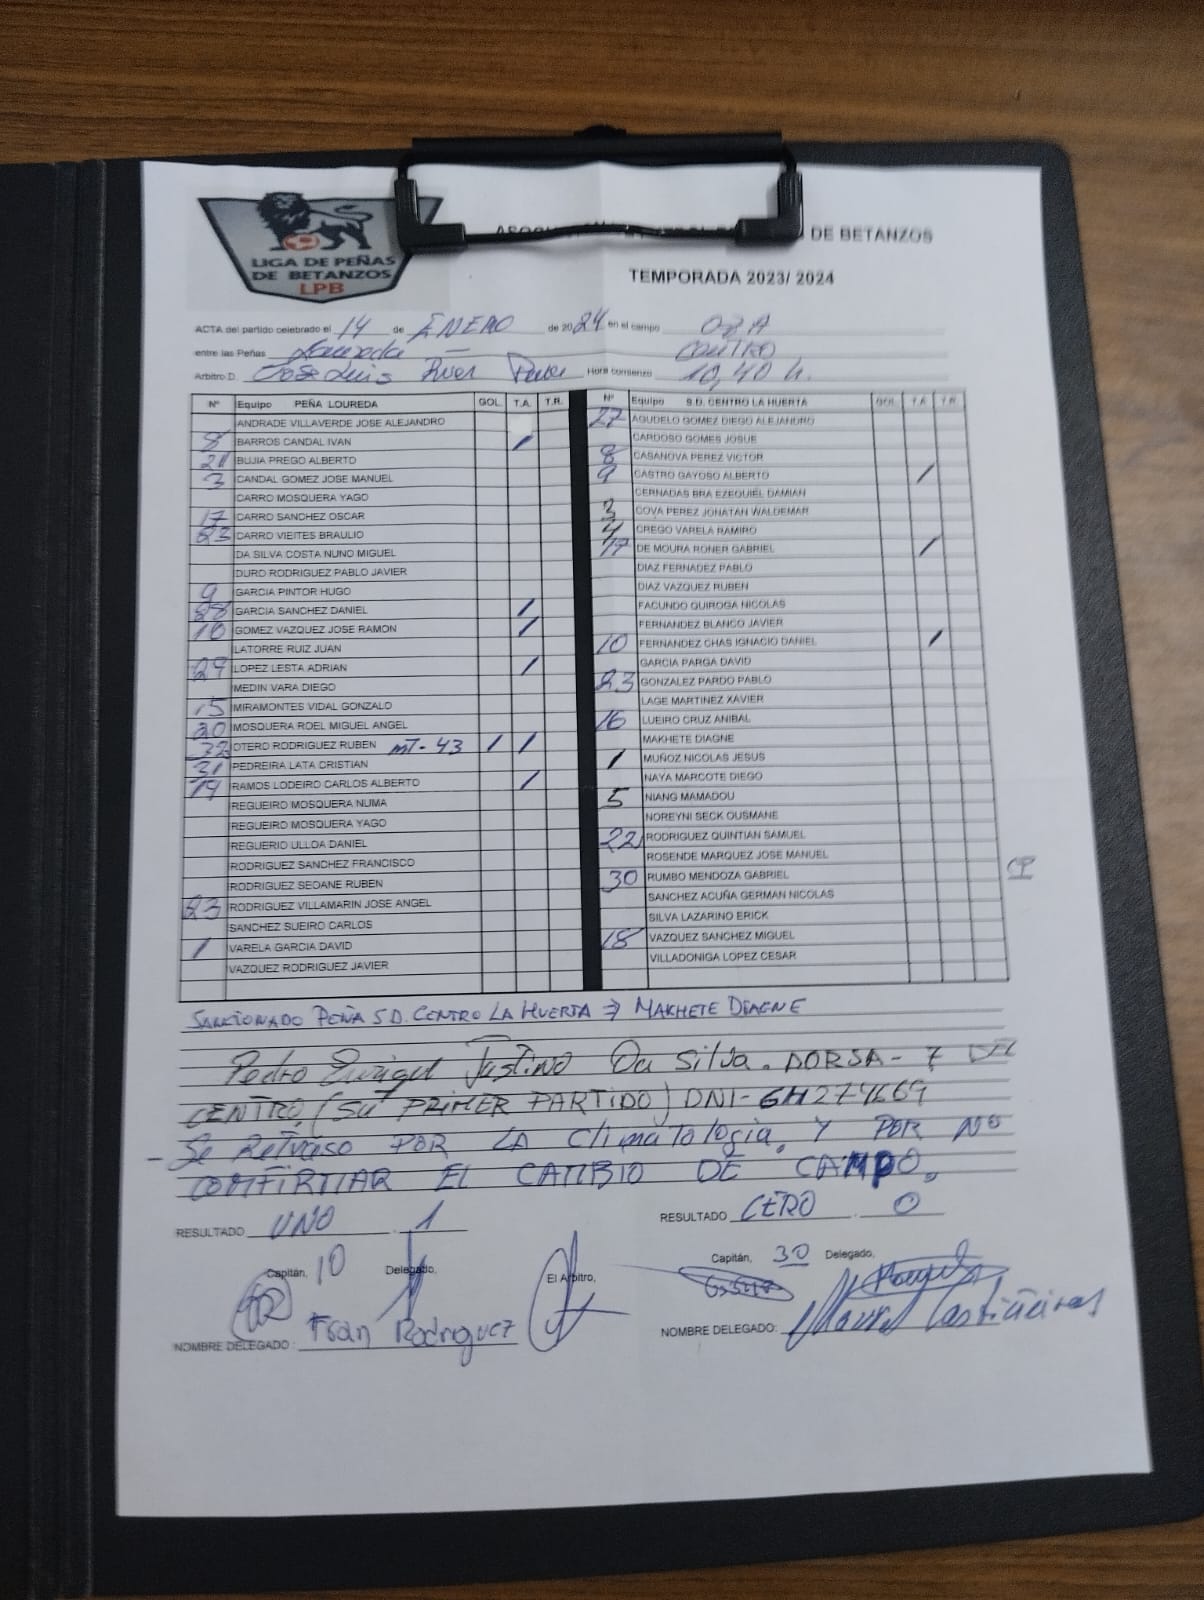 LIGA DE PEÑAS
DE BETANZOS
LPB
DE BETANZOS
TEMPORADA 2023/ 2024
ACTA del partido celebrado el 14 de ENERO de 2024 en el campo OZA
entre las Peñas Loureda - CENTRO
Arbitro D. Jose Luis Hora comienzo 10,40 h.
Nº Equipo PEÑA LOUREDA GOL T.A. T.R.
ANDRADE VILLAVERDE JOSE ALEJANDRO
8 BARROS CANDAL IVAN /
21 BUJIA PREGO ALBERTO
3 CANDAL GOMEZ JOSE MANUEL
CARRO MOSQUERA YAGO
17 CARRO SANCHEZ OSCAR
CARRO VIEITES BRAULIO
DA SILVA COSTA NUNO MIGUEL
DURO RODRIGUEZ PABLO JAVIER
9 GARCIA PINTOR HUGO
GARCIA SANCHEZ DANIEL /
10 GOMEZ VAZQUEZ JOSE RAMON /
LATORRE RUIZ JUAN
29 LOPEZ LESTA ADRIAN /
MEDIN VARA DIEGO
15 MIRAMONTES VIDAL GONZALO
20 MOSQUERA ROEL MIGUEL ANGEL
32 OTERO RODRIGUEZ RUBEN MT- 43 / /
31 PEDREIRA LATA CRISTIAN
19 RAMOS LODEIRO CARLOS ALBERTO /
REGUEIRO MOSQUERA NUMA
REGUEIRO MOSQUERA YAGO
REGUERIO ULLOA DANIEL
RODRIGUEZ SANCHEZ FRANCISCO
RODRIGUEZ SEOANE RUBEN
23 RODRIGUEZ VILLAMARIN JOSE ANGEL
SANCHEZ SUEIRO CARLOS
1 VARELA GARCIA DAVID
VAZQUEZ RODRIGUEZ JAVIER
Nº Equipo S.D. CENTRO LA HUERTA GOL T.A. T.R.
27 AGUDELO GOMEZ DIEGO ALEJANDRO
CARDOSO GOMES JOSUE
8 CASANOVA PEREZ VICTOR
9 CASTRO GAYOSO ALBERTO /
CERNADAS BRA EZEQUIEL DAMIAN
3 COVA PEREZ JONATAN WALDEMAR
4 CREGO VARELA RAMIRO
17 DE MOURA RONER GABRIEL /
DIAZ FERNADEZ PABLO
DIAZ VAZQUEZ RUBEN
FACUNDO QUIROGA NICOLAS
FERNANDEZ BLANCO JAVIER
10 FERNANDEZ CHAS IGNACIO DANIEL /
GARCIA PARGA DAVID
23 GONZALEZ PARDO PABLO
LAGE MARTINEZ XAVIER
16 LUEIRO CRUZ ANIBAL
MAKHETE DIAGNE
1 MUÑOZ NICOLAS JESUS
NAYA MARCOTE DIEGO
5 NIANG MAMADOU
NOREYNI SECK OUSMANE
22 RODRIGUEZ QUINTIAN SAMUEL
ROSENDE MARQUEZ JOSE MANUEL
30 RUMBO MENDOZA GABRIEL CP
SANCHEZ ACUÑA GERMAN NICOLAS
SILVA LAZARINO ERICK
18 VAZQUEZ SANCHEZ MIGUEL
VILLADONIGA LOPEZ CESAR
SANCIONADO PEÑA S.D. CENTRO LA HUERTA => MAKHETE DIAGNE
Pedro Justino Da Silva. DORSA- 7 DEL
CENTRO, (SU PRIMER PARTIDO) DNI-
- Se Retraso POR LA Climatologia, Y POR NO
COMFIRMAR EL CAMBIO DE CAMPO,
RESULTADO UNO . 1
RESULTADO CERO . 0
Capitán, 10 Delegado,
El Arbitro,
Capitán, 30 Delegado,
NOMBRE DELEGADO : Fran Rodriguez
NOMBRE DELEGADO: Castiñeiras